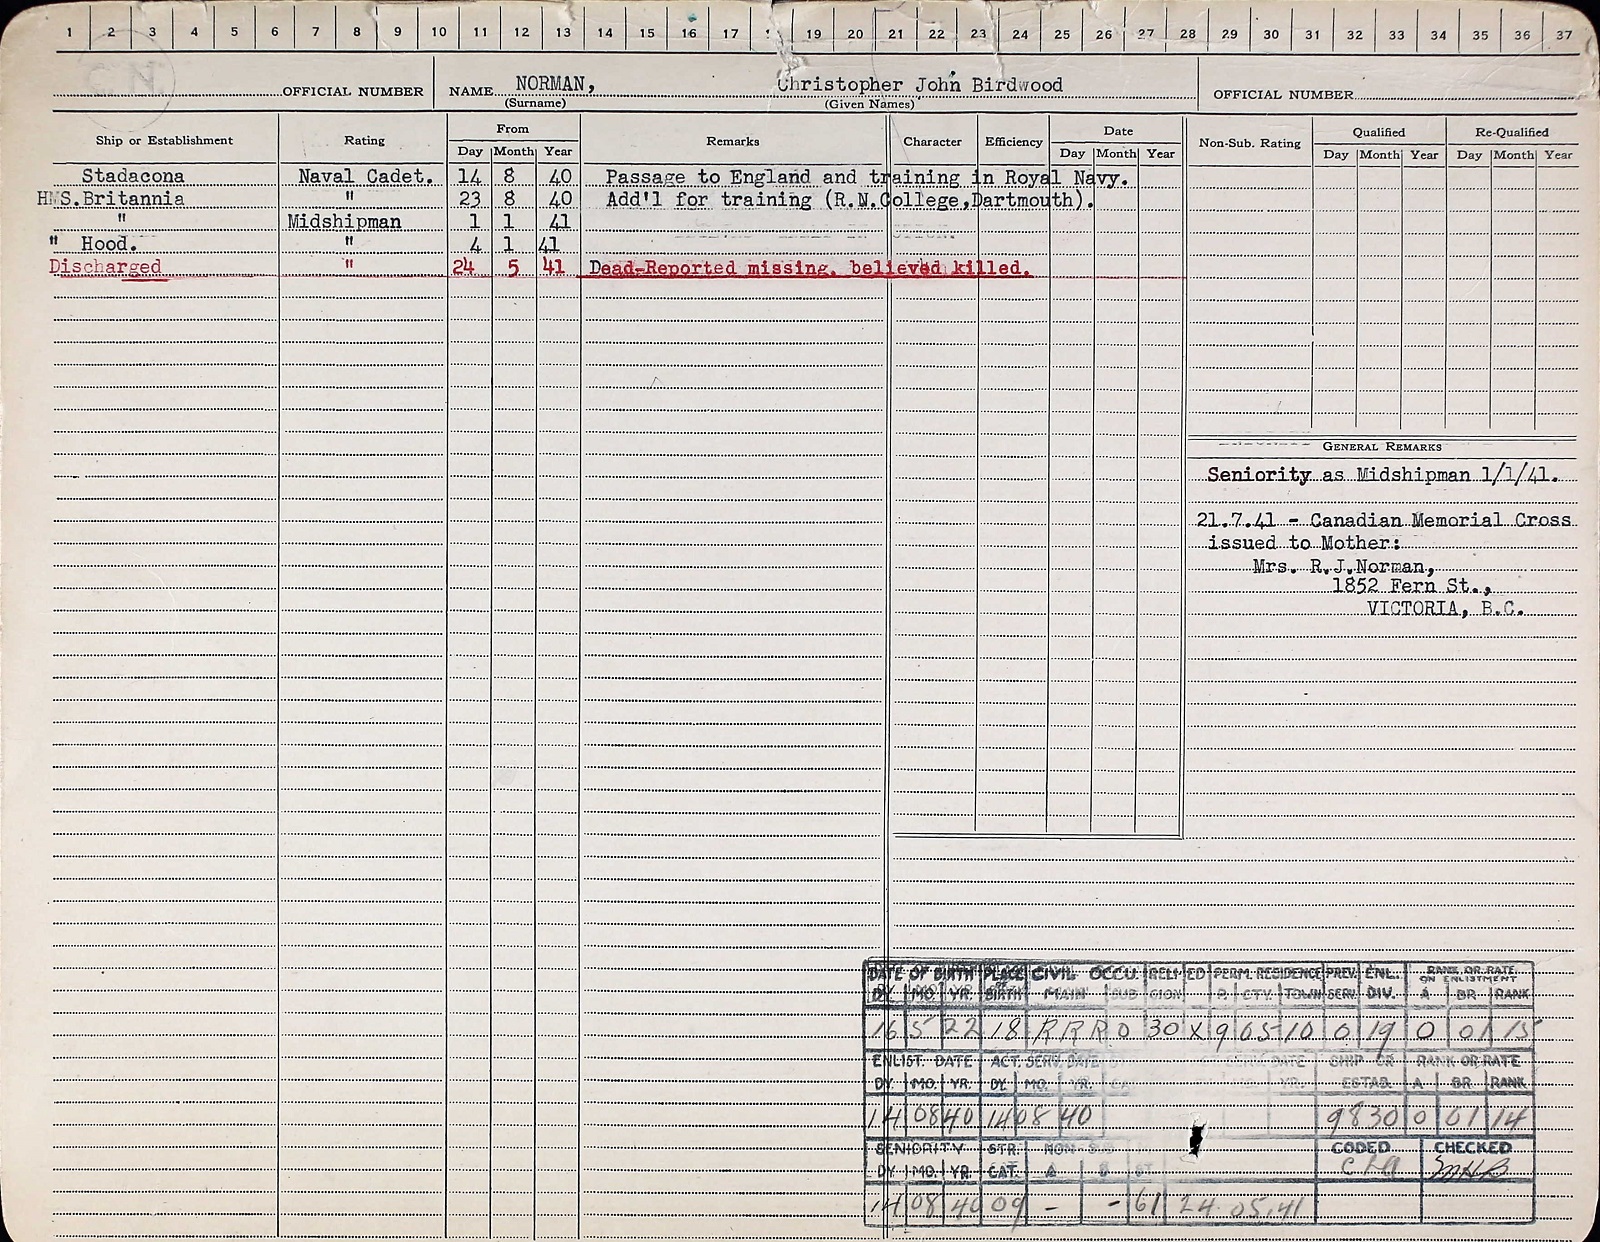 1 2 3 4 5 6 7 8 9 10 11 12 13 14 15 16 17 19 20 21 22 23 24 25 26 27 28 29 30 31 32 33 34 35 36 37
OFFICIAL NUMBER NAME NORMAN, Christopher John Birdwood OFFICIAL NUMBER
(Surname) (Given Names)
Ship or Establishment Rating From Remarks Character Efficiency Date Non-Sub. Rating Qualified Re-Qualified
Day Month Year Day Month Year Day Month Year Day Month Year
Stadacona Naval Cadet. 14 8 40 Passage to England and training in Royal Navy.
HMS.Britannia " 23 8 40 Add'l for training (R.N.College,Dartmouth).
" Midshipman 1 1 41
" Hood. " 4 1 41
Discharged " 24 5 41 Dead-Reported missing, believed killed.
GENERAL REMARKS
Seniority as Midshipman 1/1/41.
21.7.41 - Canadian Memorial Cross
issued to Mother:
Mrs. R.J.Norman,
1852 Fern St.,
VICTORIA, B.C.
DATE OF BIRTH PLACE OF BIRTH CIVIL OCCU. RELI-GION ED PERM. RESIDENCE PREV. SERV. ENL. DIV. RANK OR RATE ON ENLISTMENT
DY. MO. YR. MAIN SUB P. CTY. TOWN A BR. RANK
16 5 22 18 RRR 0 30 X 9 05 10 0 19 0 01 15
ENLIST. DATE ACT. SERV. DATE SHIP OR ESTAB. RANK OR RATE
DY. MO. YR. DY. MO. YR. YR. A BR. RANK
14 08 40 14 08 40 9830 0 01 14
SENIORITY STR. CAT. NON SUB CODED CHECKED
DY. MO. YR. A B ST
14 08 40 09 - - 61 24 05 41